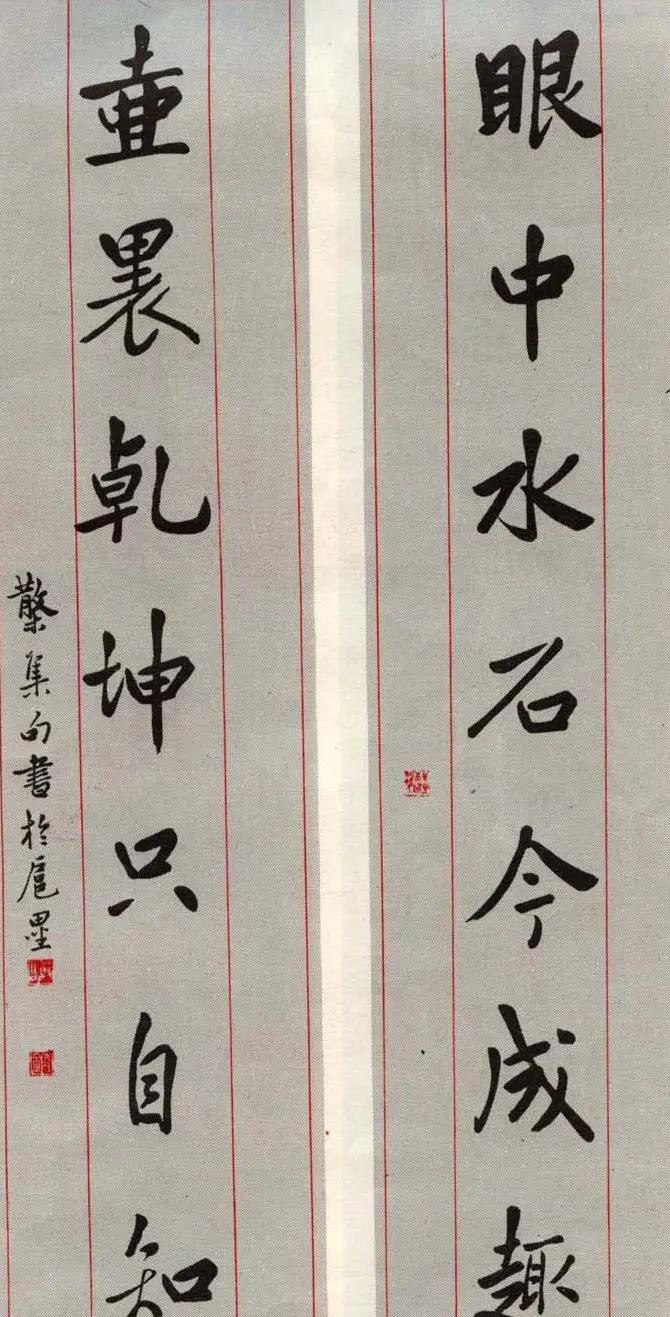 眼中水石今成趣
壷裏乾坤只自知
集句書於